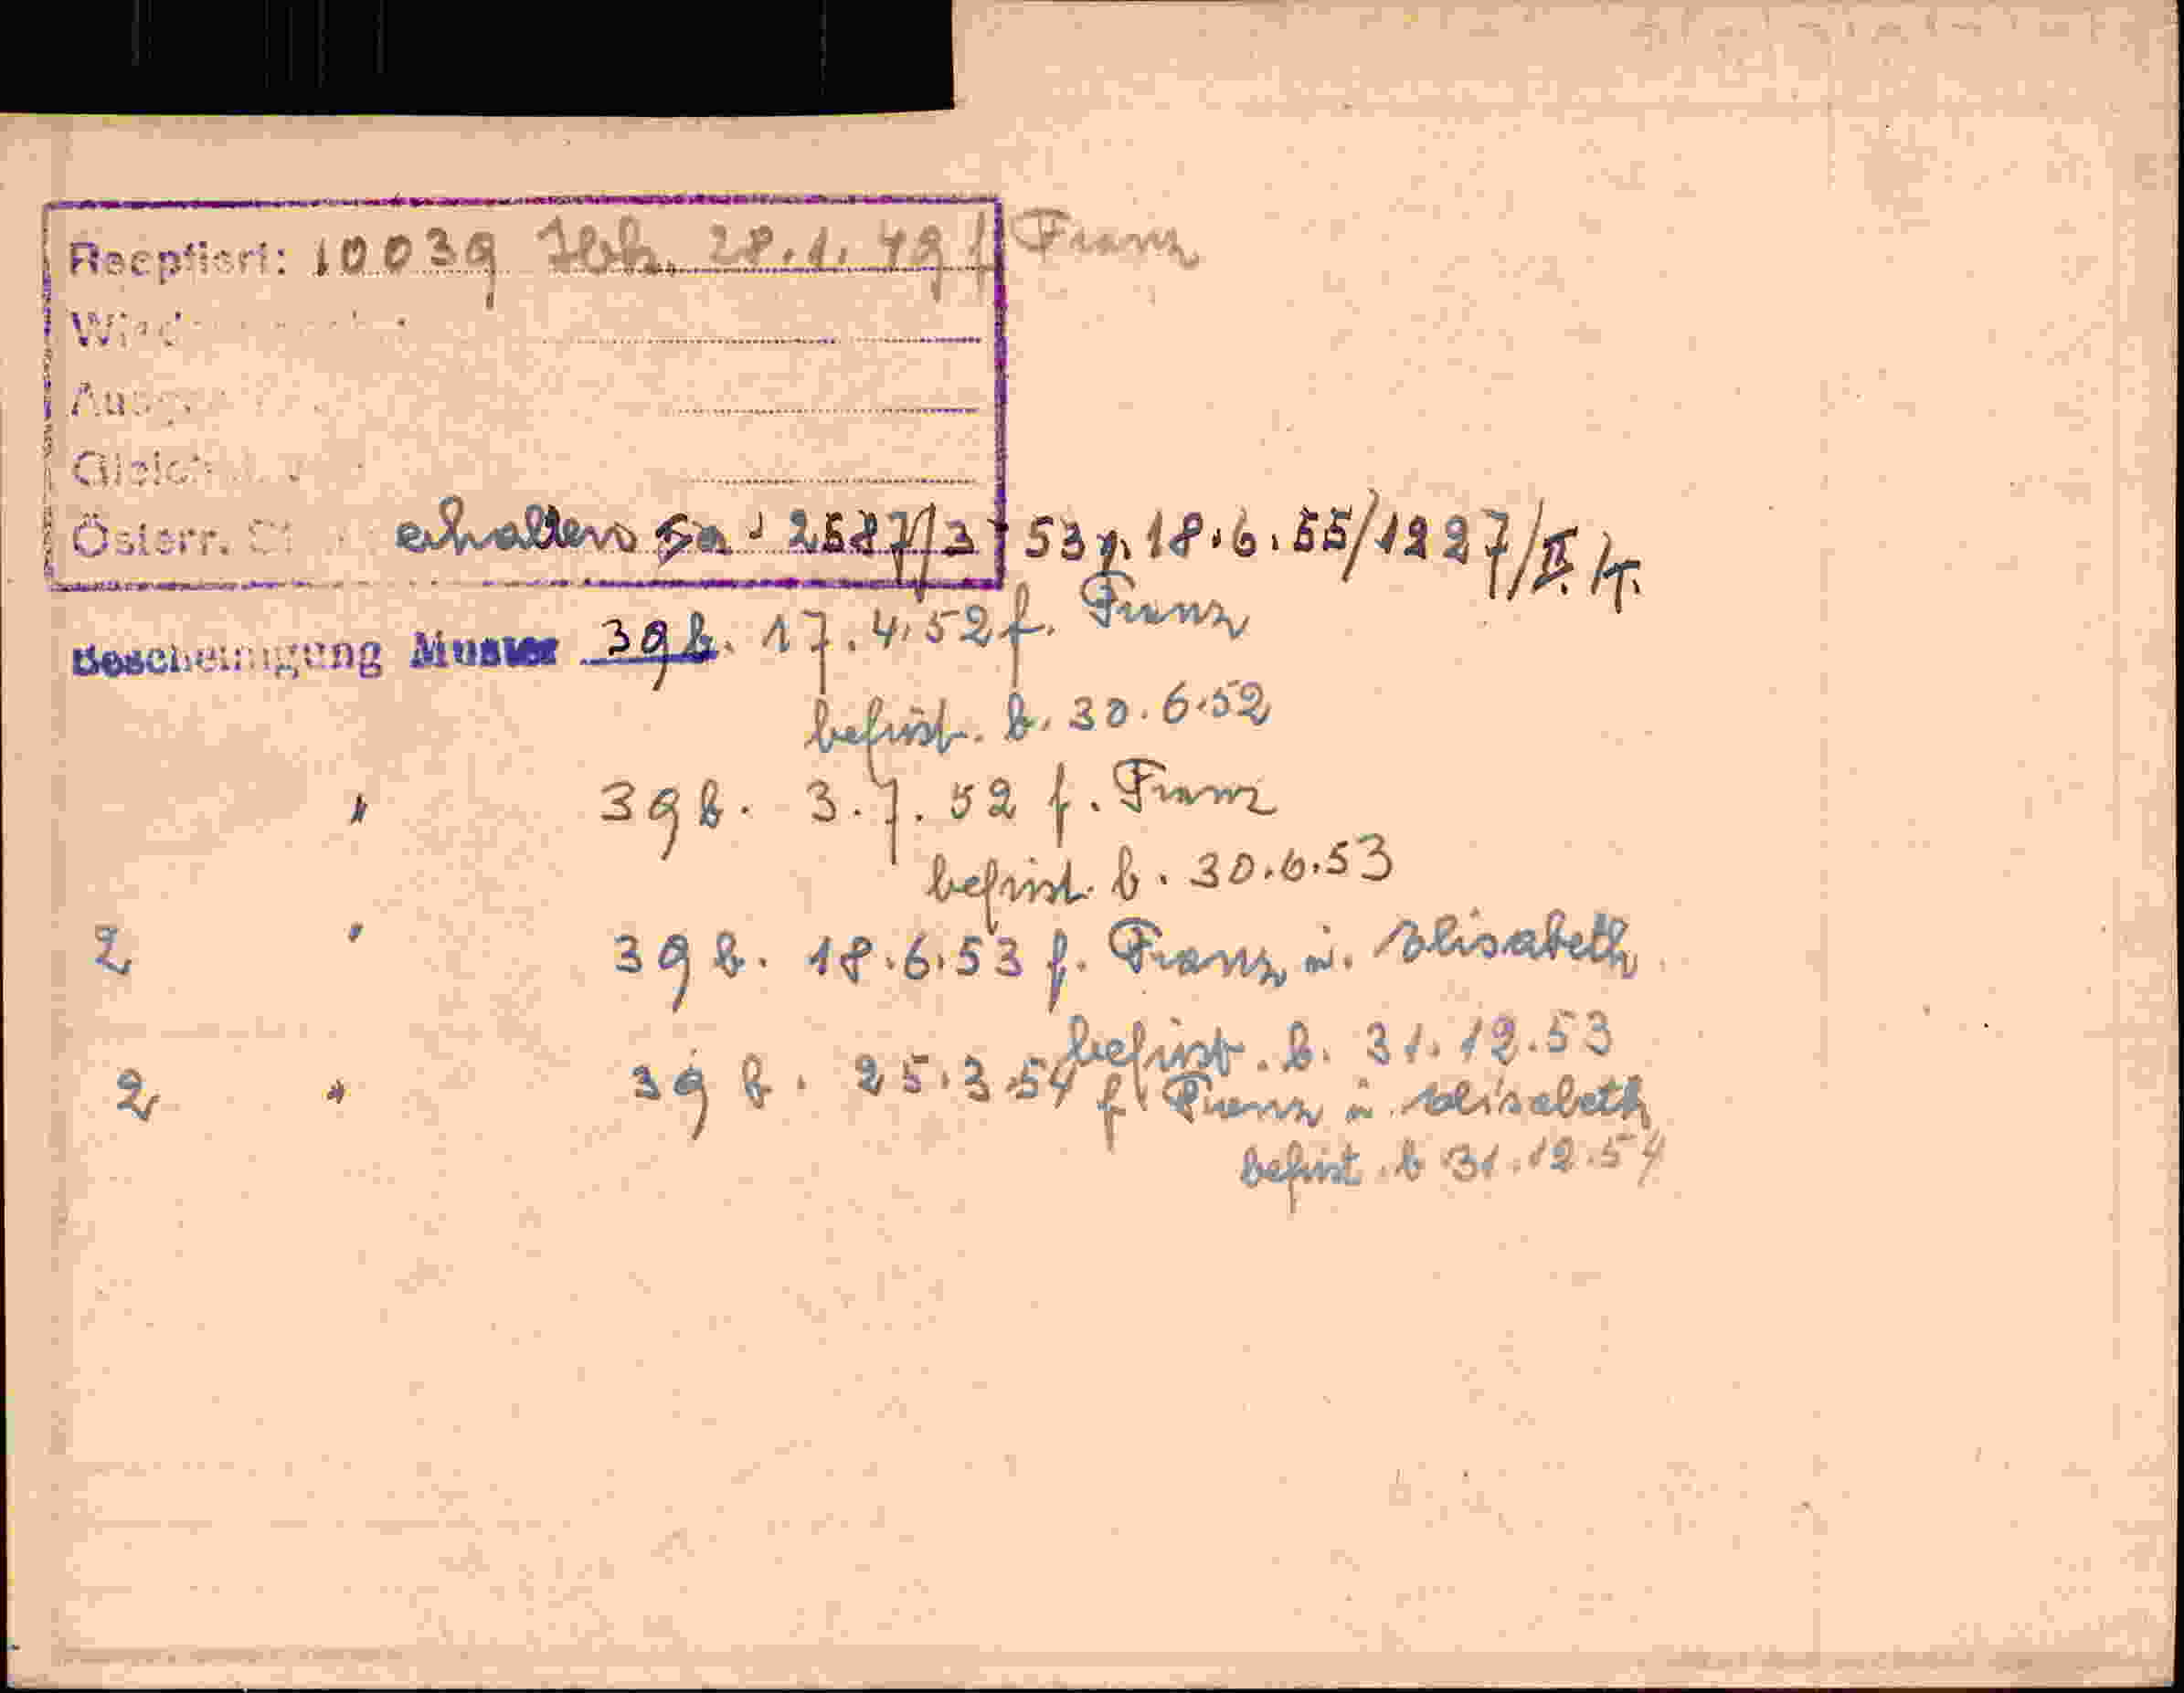 Reeptiert: 10039 28.1.49 f Franz
Österr. erhalten Sa. 2587/3 53 v. 18.6.55/1227/II/
Bescheinigung Muster 39 b. 17.4.52 f. Franz
befrist. b. 30.6.52
" 39 b. 3.7.52 f. Franz
befrist. b. 30.6.53
2 " 39 b. 18.6.53 f. Franz u. Elisabeth
befrist. b. 31.12.53
2 " 39 b. 25.3.54 f. Franz u. Elisabeth
befrist. b 31.12.54